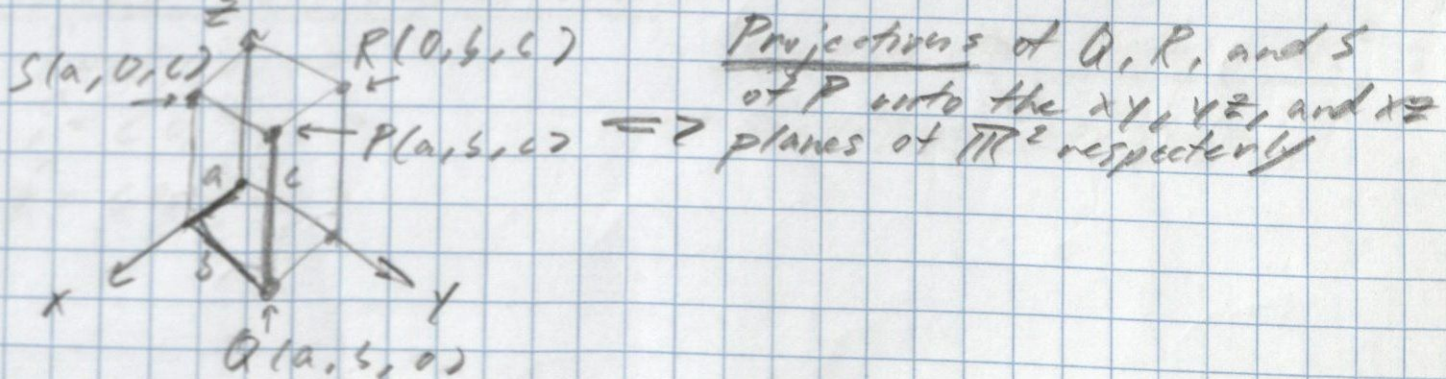 z
S(a,0,c)
R(0,b,c)
P(a,b,c) =>
a
c
b
x
y
Q(a,b,0)
Projections of Q, R, and S
of P onto the xy, yz, and xz
planes of ℝ² respecterly